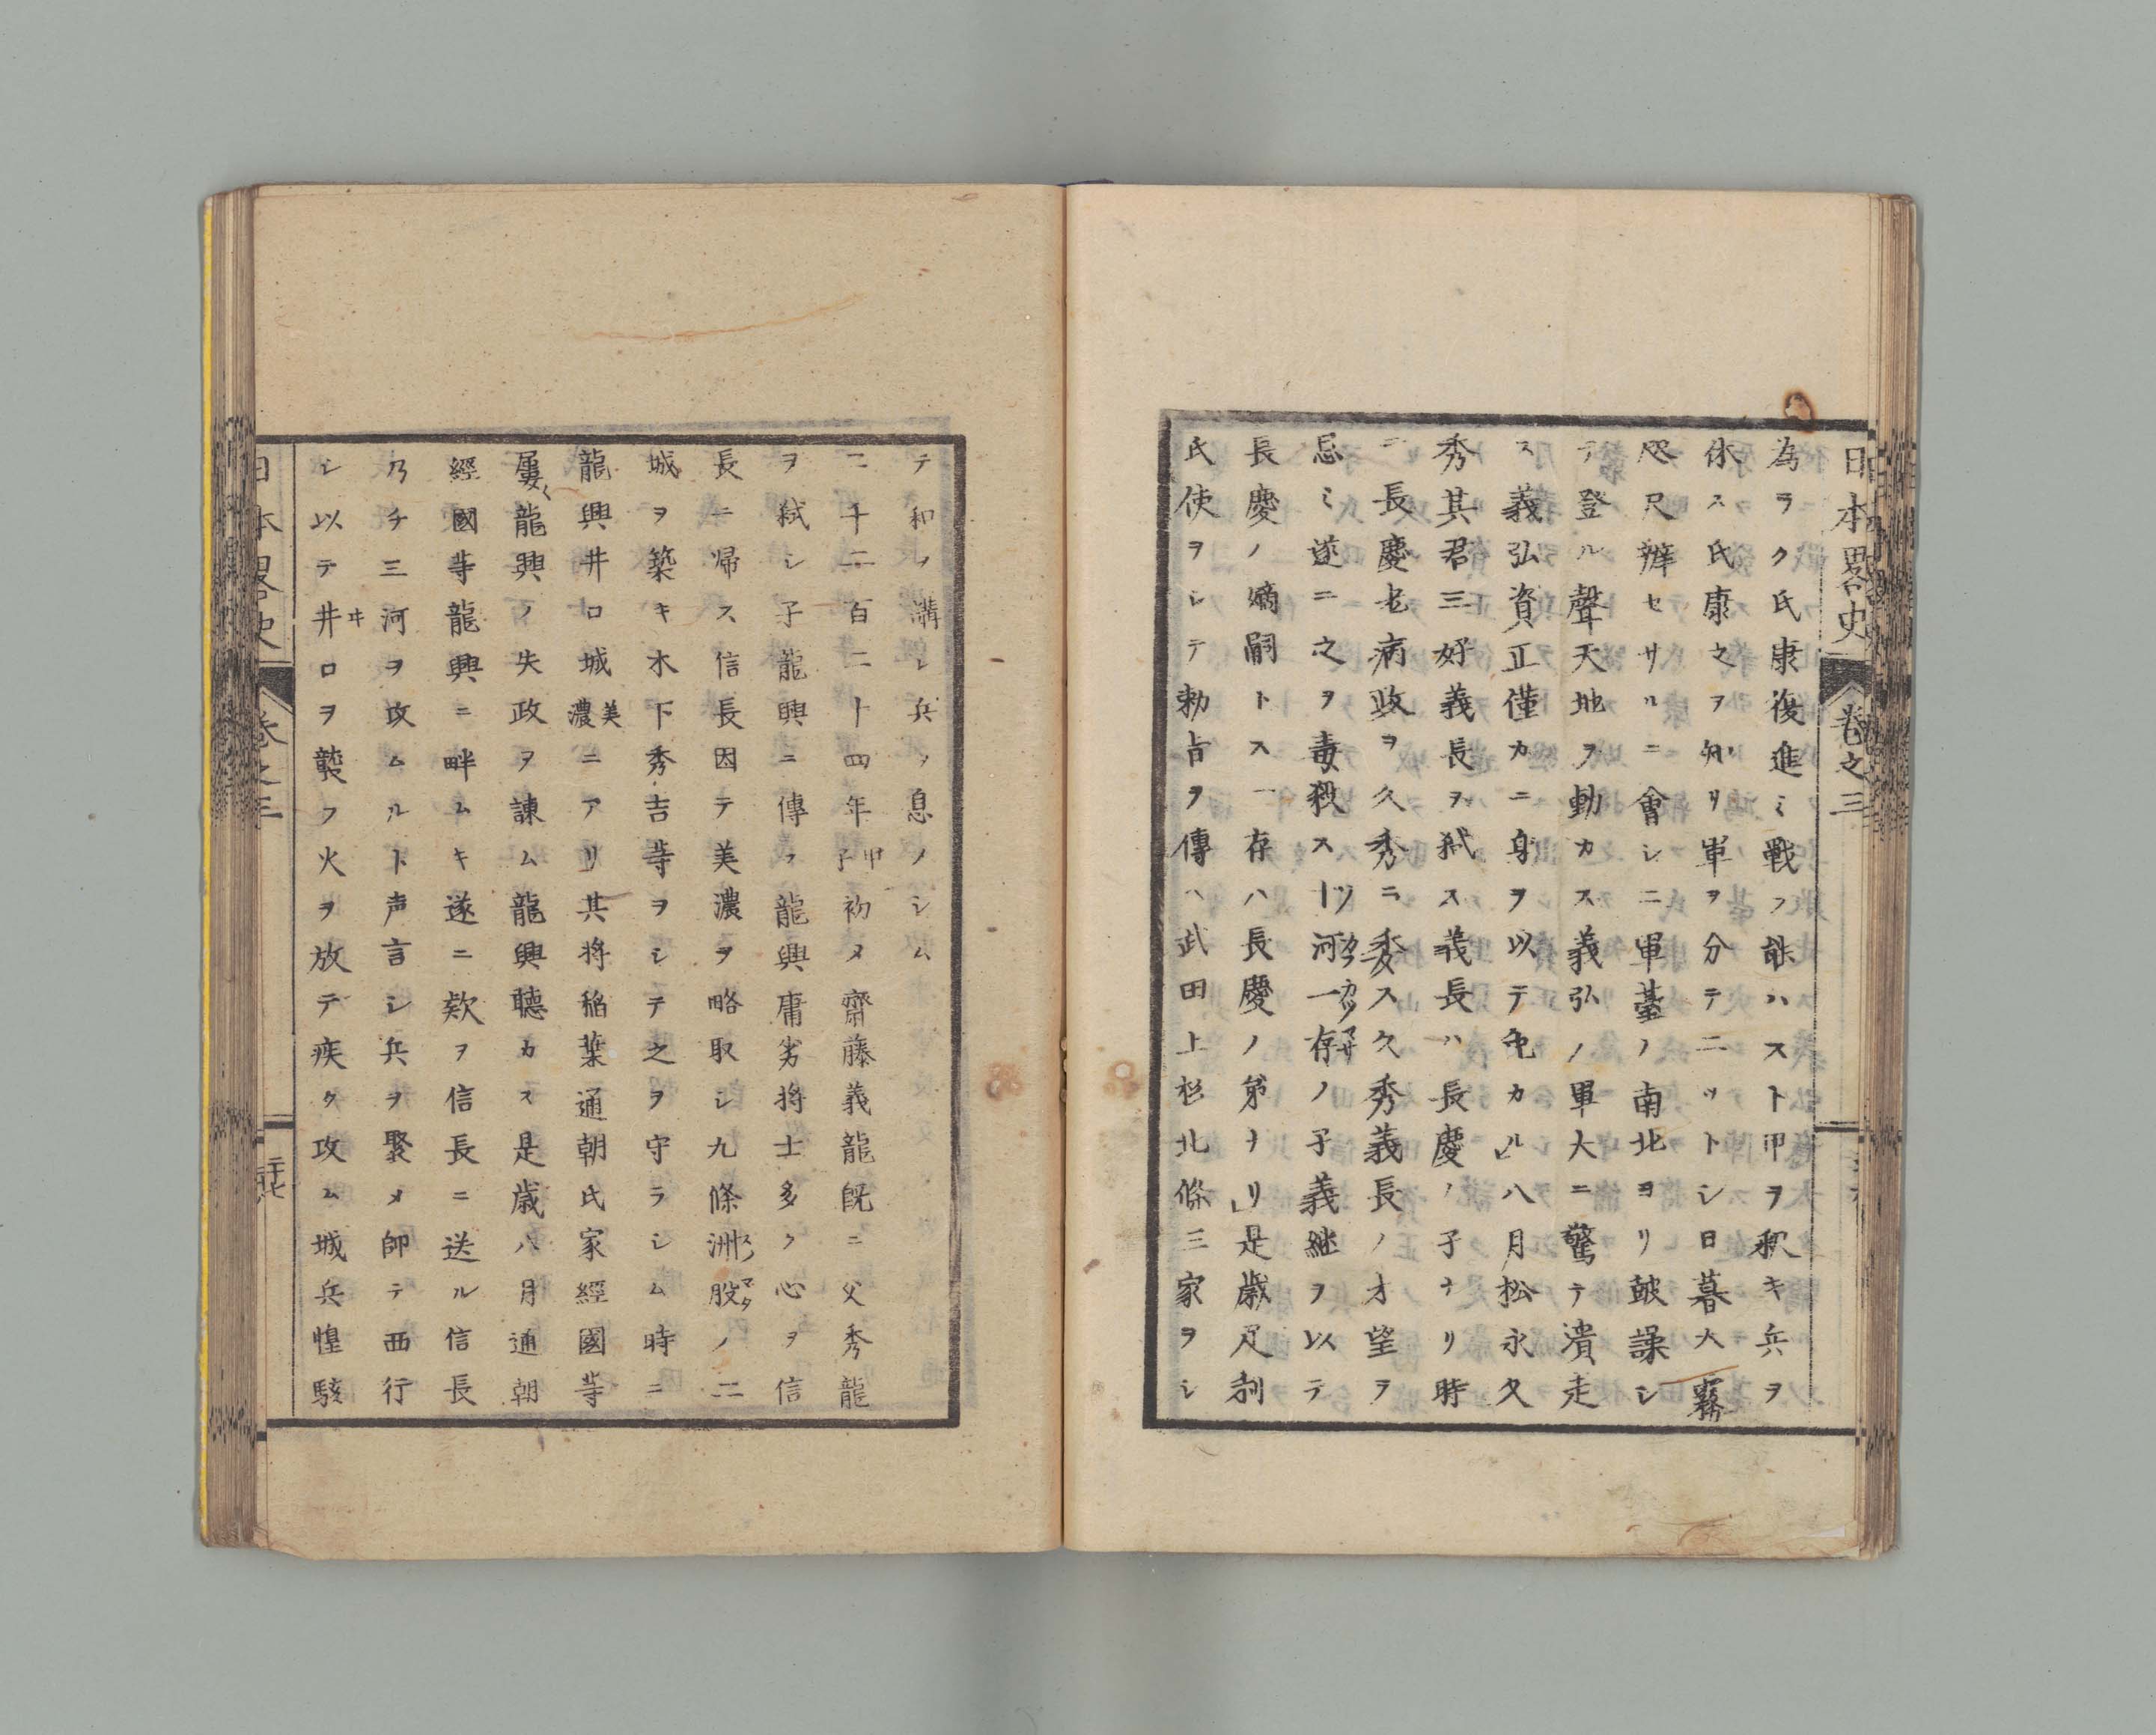 日本畧史 卷之三
為ラク氏康復進ミ戰フ䏻ハスト甲ヲ釈キ兵ヲ
休ス氏康之ヲ知リ軍ヲ分テ二ツトシ日暮大霧
咫尺辨セサルニ會シ二軍䑓ノ南北ヨリ皷譟シ
テ登ル聲天地ヲ動カス義弘ノ軍大ニ驚テ潰走
ス義弘資正僅カニ身ヲ以テ免カル」八月松永久
秀其君三好義長ヲ弑ス義長ハ長慶ノ子ナリ時
ニ長慶老病政ヲ久秀ニ委ス久秀義長ノ才望ヲ
忌ミ遂ニ之ヲ毒殺ス十河一存ノ子義継ヲ以テ
長慶ノ嫡嗣トス一存ハ長慶ノ弟ナリ」是歳足利
氏使ヲシテ勅旨ヲ傳ヘ武田上杉北條三家ヲシ
テ和ヲ講シ兵ヲ息ノシム
二千二百二十四年甲子初メ齋藤義龍既ニ父秀龍
ヲ弑シ子龍興ニ傳フ龍興庸劣将士多ク心ヲ信
長ニ帰ス信長因テ美濃ヲ略取シ九條洲股ノ二
城ヲ築キ木下秀吉等ヲシテ之ヲ守ラシム時ニ
龍興井口城美濃ニアリ其将稲葉通朝氏家經國等
屢〻龍興ノ失政ヲ諫ム龍興聴カス是歳八月通朝
經國等龍興ニ畔ムキ遂ニ欵ヲ信長ニ送ル信長
乃チ三河ヲ攻ムルト声言シ兵ヲ聚メ師テ西行
シ以テ井口ヲ襲フ火ヲ放テ疾ク攻ム城兵惶駭
日本畧史 卷之三 二十七